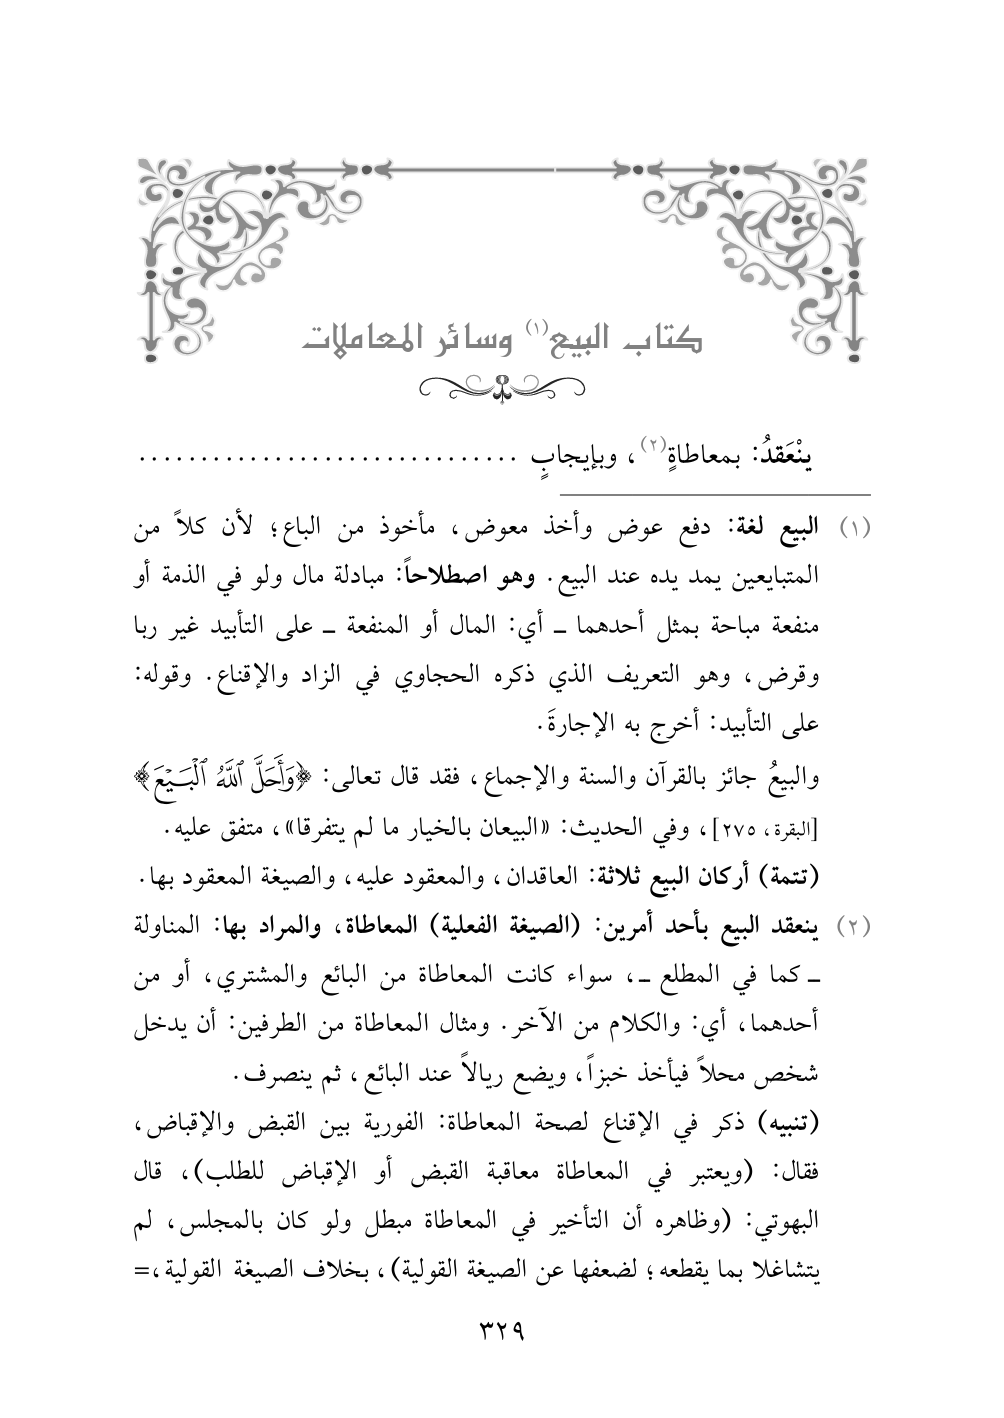 كتاب البيع(١) وسائر المعاملات
ينْعَقدُ: بمعاطاةٍ(٢)، وبإيجابٍ ..............................
(١) البيع لغة: دفع عوض وأخذ معوض، مأخوذ من الباع؛ لأن كلاً من
المتبايعين يمد يده عند البيع. وهو اصطلاحاً: مبادلة مال ولو في الذمة أو
منفعة مباحة بمثل أحدهما ــ أي: المال أو المنفعة ــ على التأبيد غير ربا
وقرض، وهو التعريف الذي ذكره الحجاوي في الزاد والإقناع. وقوله:
على التأبيد: أخرج به الإجارةَ.
والبيعُ جائز بالقرآن والسنة والإجماع، فقد قال تعالى: ﴿وَأَحَلَّ ٱللَّهُ ٱلْبَيْعَ﴾
[البقرة، ٢٧٥]، وفي الحديث: «البيعان بالخيار ما لم يتفرقا»، متفق عليه.
(تتمة) أركان البيع ثلاثة: العاقدان، والمعقود عليه، والصيغة المعقود بها.
(٢) ينعقد البيع بأحد أمرين: (الصيغة الفعلية) المعاطاة، والمراد بها: المناولة
ــ كما في المطلع ــ، سواء كانت المعاطاة من البائع والمشتري، أو من
أحدهما، أي: والكلام من الآخر. ومثال المعاطاة من الطرفين: أن يدخل
شخص محلاً فيأخذ خبزاً، ويضع ريالاً عند البائع، ثم ينصرف.
(تنبيه) ذكر في الإقناع لصحة المعاطاة: الفورية بين القبض والإقباض،
فقال: (ويعتبر في المعاطاة معاقبة القبض أو الإقباض للطلب)، قال
البهوتي: (وظاهره أن التأخير في المعاطاة مبطل ولو كان بالمجلس، لم
يتشاغلا بما يقطعه؛ لضعفها عن الصيغة القولية)، بخلاف الصيغة القولية،=
٣٢٩